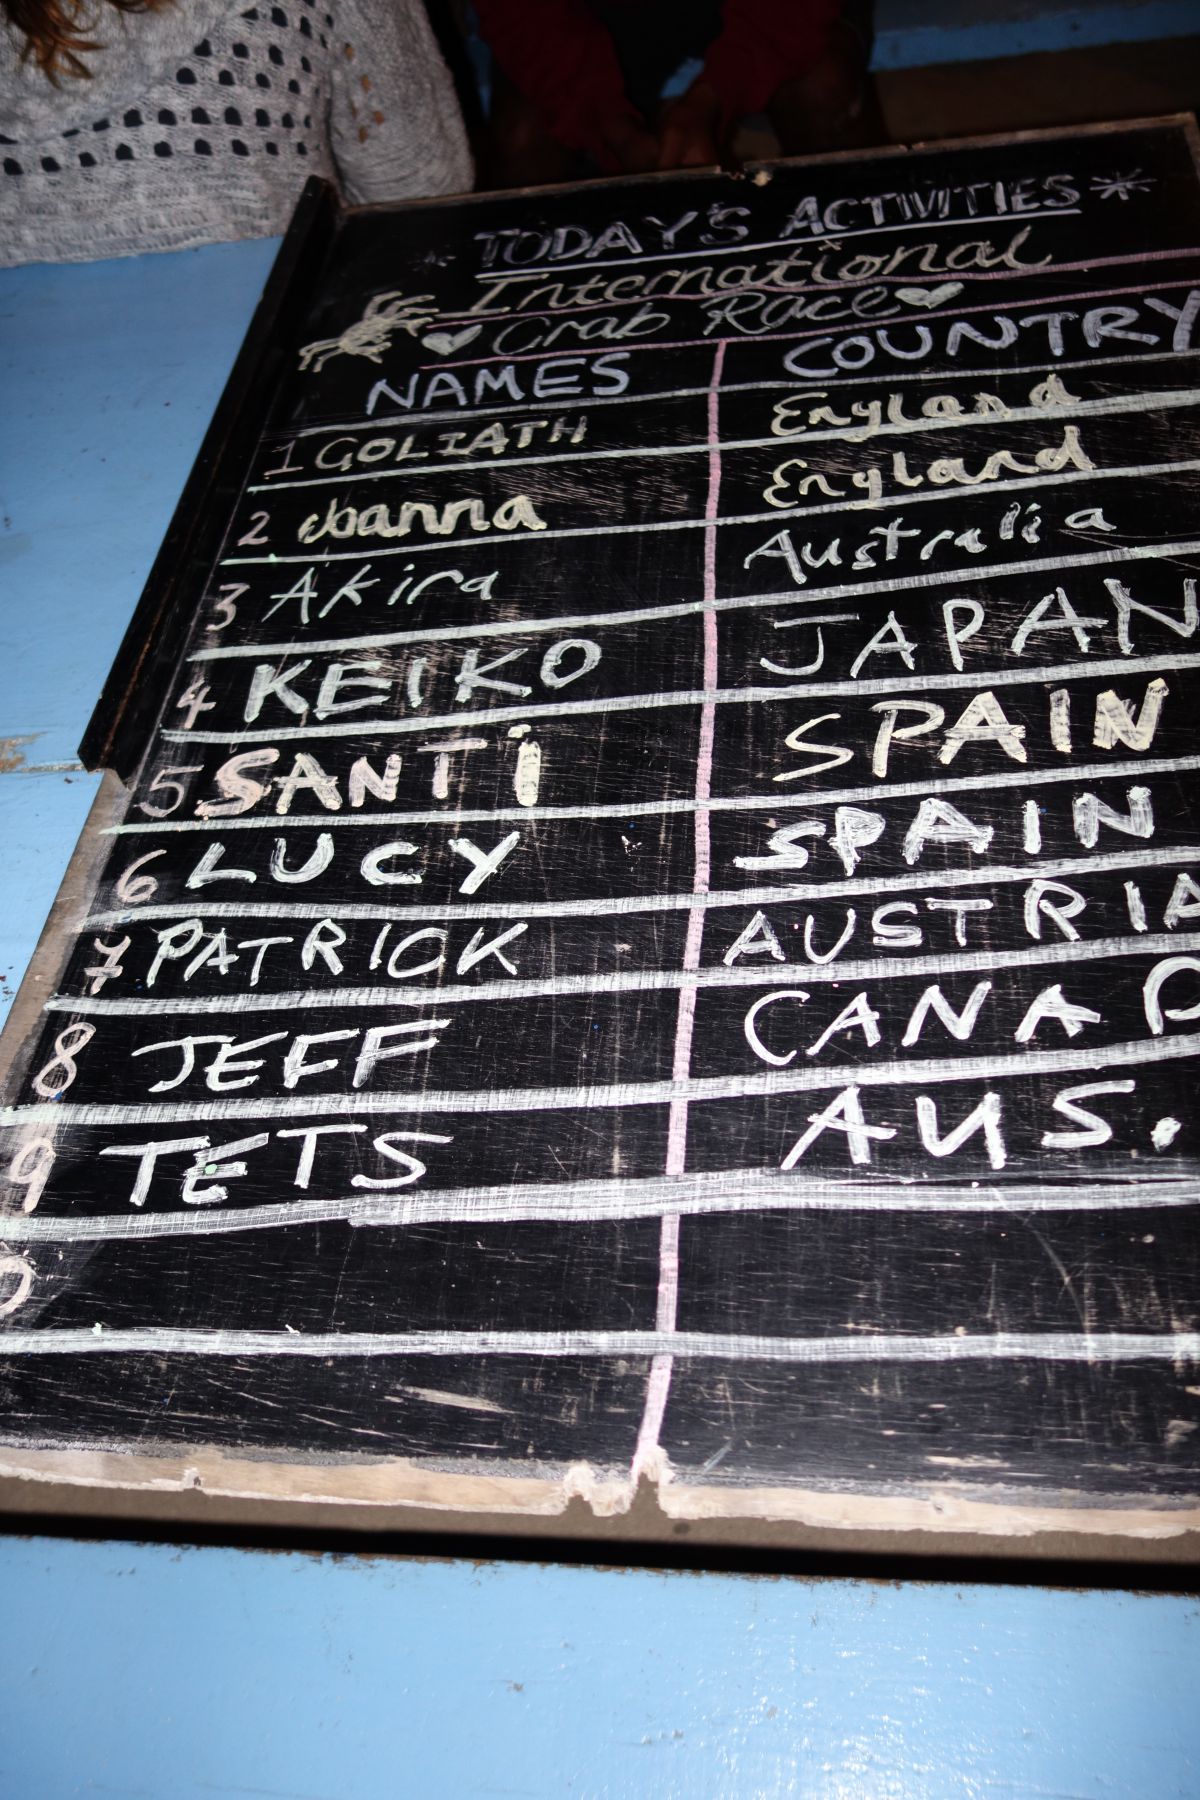 * TODAY'S ACTIVITIES *
International
Crab Race
NAMES COUNTRY
1 GOLIATH England
2 Joanna England
3 Akira Australia
4 KEIKO JAPAN
5 SANTi SPAIN
6 LUCY SPAIN
7 PATRICK AUSTRIA
8 JEFF CANAD
9 TETS AUS.
0